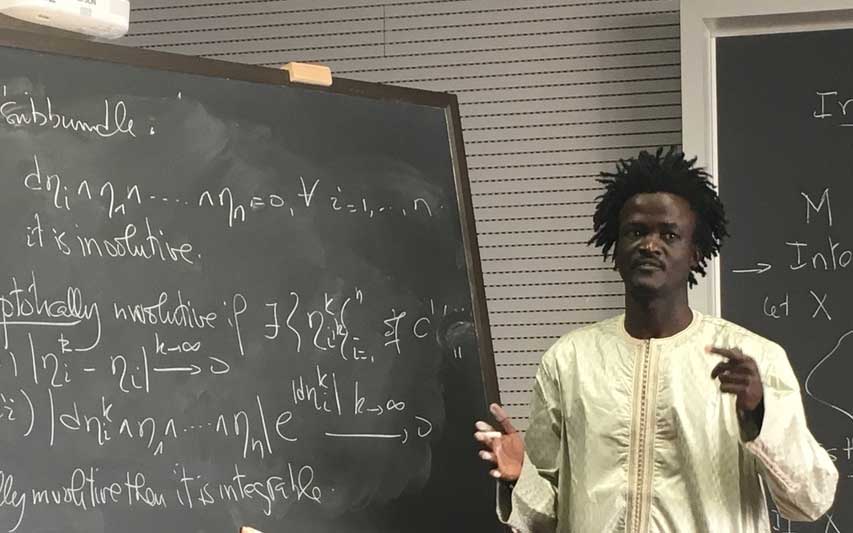 subbundle:
dηi ∧ η1 ∧ .... ∧ ηn = 0, ∀ i = 1, ..., n.
it is involutive.
ptotically involutive if ∃ {ηi^k}i=1^n of C^1
) |ηi^k - ηi| → 0 k→∞
) |dηi^k ∧ η1 ∧ .... ∧ ηn| e^|dηi^k| → 0 k→∞
lly involutive then it is integrable.
M
→ Into
let X
X